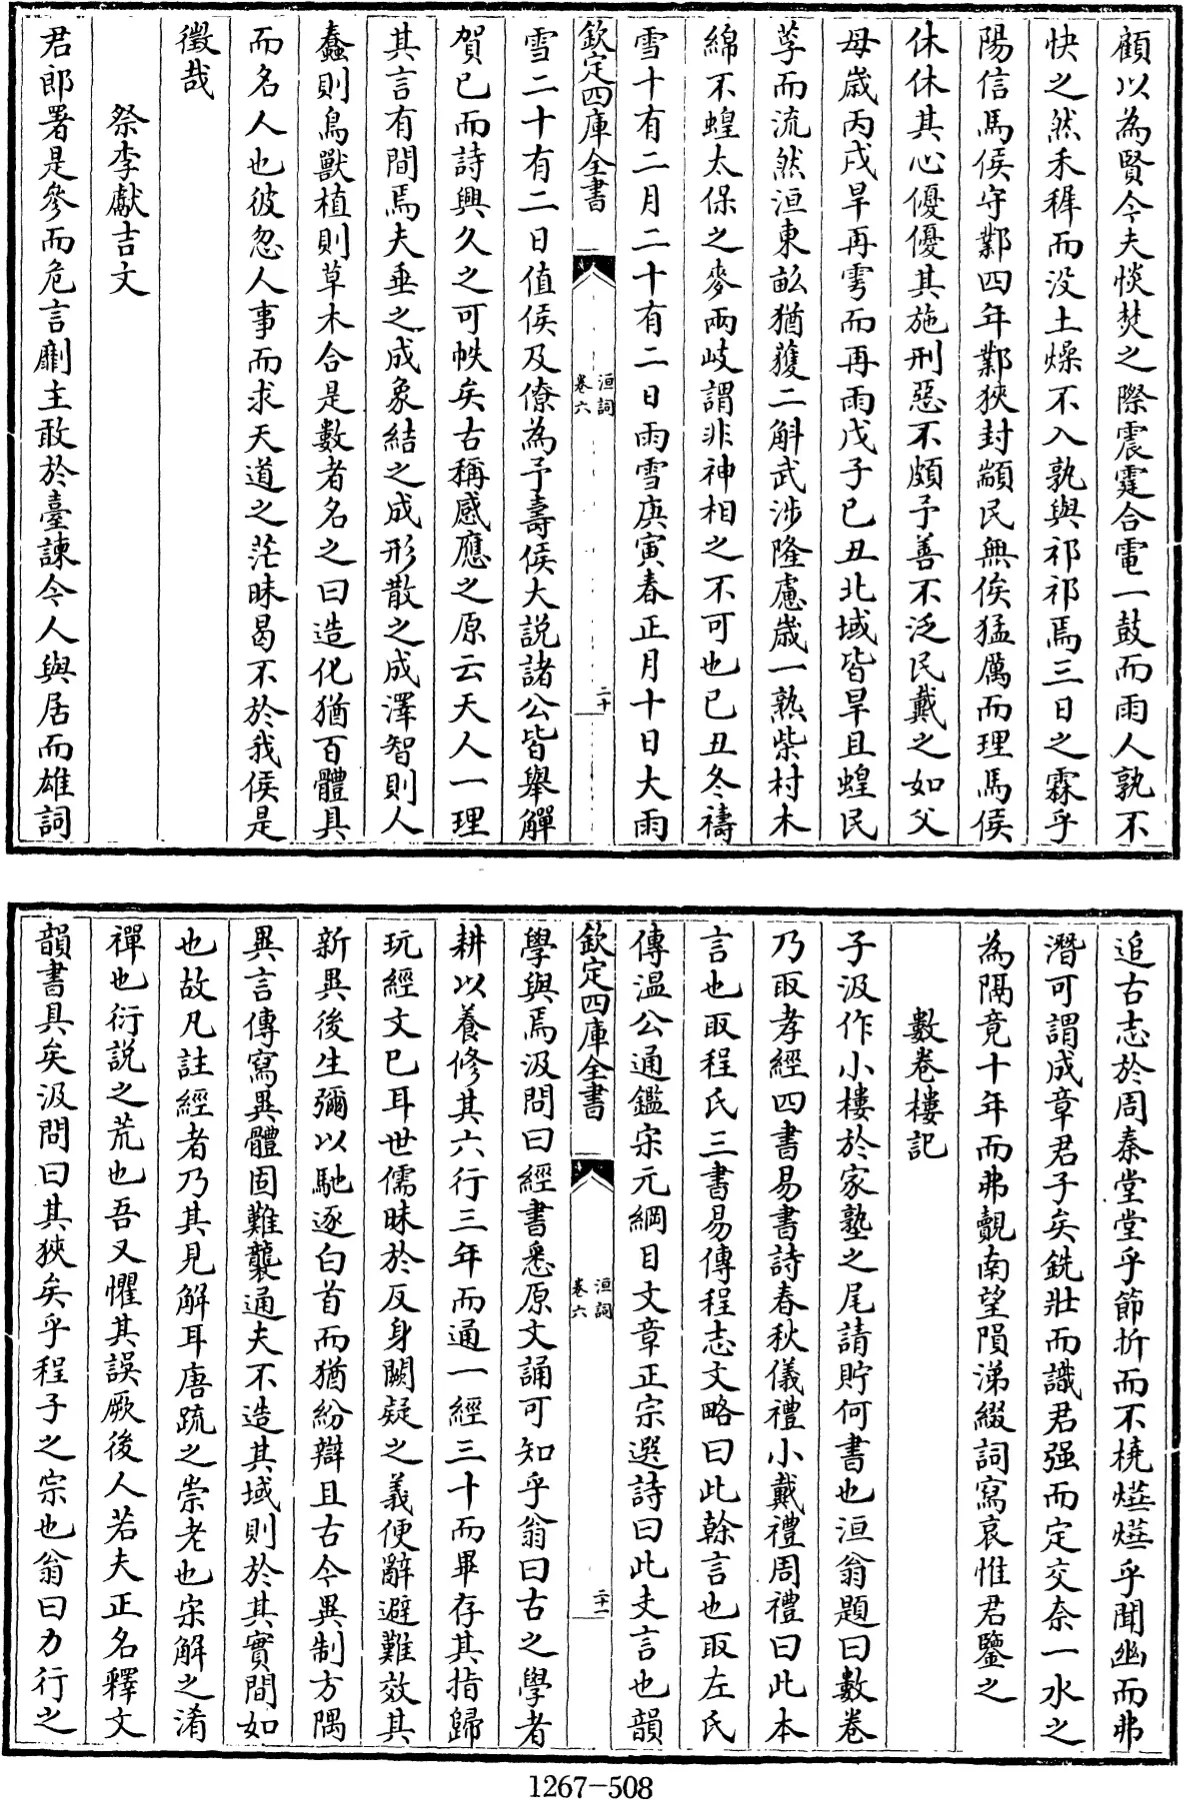 顧以為賢今夫惔焚之際震霆合電一鼓而雨人孰不
快之然禾穉而没土燥不入孰與祁祁焉三日之霖乎
陽信馬侯守鄴四年鄴狹封顓民無俟猛厲而理馬侯
休休其心優優其施刑惡不頗予善不泛民戴之如父
母歲丙戌旱再雩而再雨戊子己丑北域皆旱且蝗民
莩而流然洹東畝猶獲二斛武涉隆慮歲一熟柴村木
綿不蝗太保之麥兩岐謂非神相之不可也己丑冬禱
雪十有二月二十有二日雨雪庚寅春正月十日大雨
欽定四庫全書
洹詞
卷六
二十
雪二十有二日值侯及僚為予壽侯大説諸公皆舉觶
賀已而詩興久之可帙矣古稱感應之原云天人一理
其言有間焉夫垂之成象結之成形散之成澤智則人
蠢則鳥獸植則草木合是數者名之曰造化猶百體具
而名人也彼忽人事而求天道之茫昧曷不於我侯是
徵哉
祭李獻吉文
君郎署是參而危言劘主敢於臺諫今人與居而雄詞
追古志於周秦堂堂乎節折而不橈爗爗乎聞幽而弗
潛可謂成章君子矣銑壯而識君强而定交奈一水之
為隔竟十年而弗覿南望隕涕綴詞寫哀惟君鑒之
數卷樓記
子汲作小樓於家塾之尾請貯何書也洹翁題曰數卷
乃取孝經四書易書詩春秋儀禮小戴禮周禮曰此本
言也取程氏三書易傳程志文略曰此榦言也取左氏
傳温公通鑑宋元綱目文章正宗選詩曰此支言也韻
欽定四庫全書
洹詞
卷六
二十一
學與焉汲問曰經書悉原文誦可知乎翁曰古之學者
耕以養修其六行三年而通一經三十而畢存其指歸
玩經文已耳世儒昧於反身闕疑之義便辭避難效其
新異後生彌以馳逐白首而猶紛辯且古今異制方隅
異言傳寫異體固難襲通夫不造其域則於其實間如
也故凡註經者乃其見解耳唐疏之崇老也宋解之淆
禪也衍説之荒也吾又懼其誤厥後人若夫正名釋文
韻書具矣汲問曰其狹矣乎程子之宗也翁曰力行之
1267-508